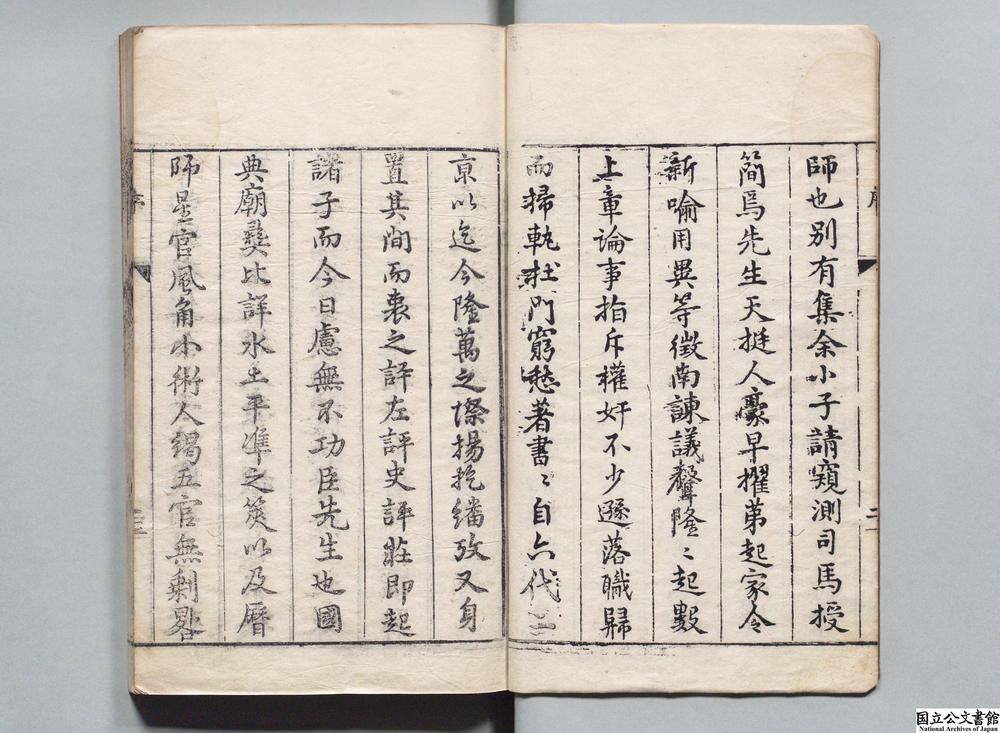 師也別有集余小子請窺測司馬授
簡焉先生天挺人豪早擢第起家令
新喻用異等徵南諫議聲隆〻起數
上章論事指斥權奸不少遜落職歸
而掃軌杜門窮愁著書〻自六代三
京以迄今隆萬之際揚扢繙攷又身
置其間而衷之評左評史評莊即起
諸子而今日慮無不功臣先生也國
典廟彝比詳水土平準之筴以及曆
師星官風角小術人謁五官無剩畧
序
二
序
三
国立公文書館
National Archives of Japan